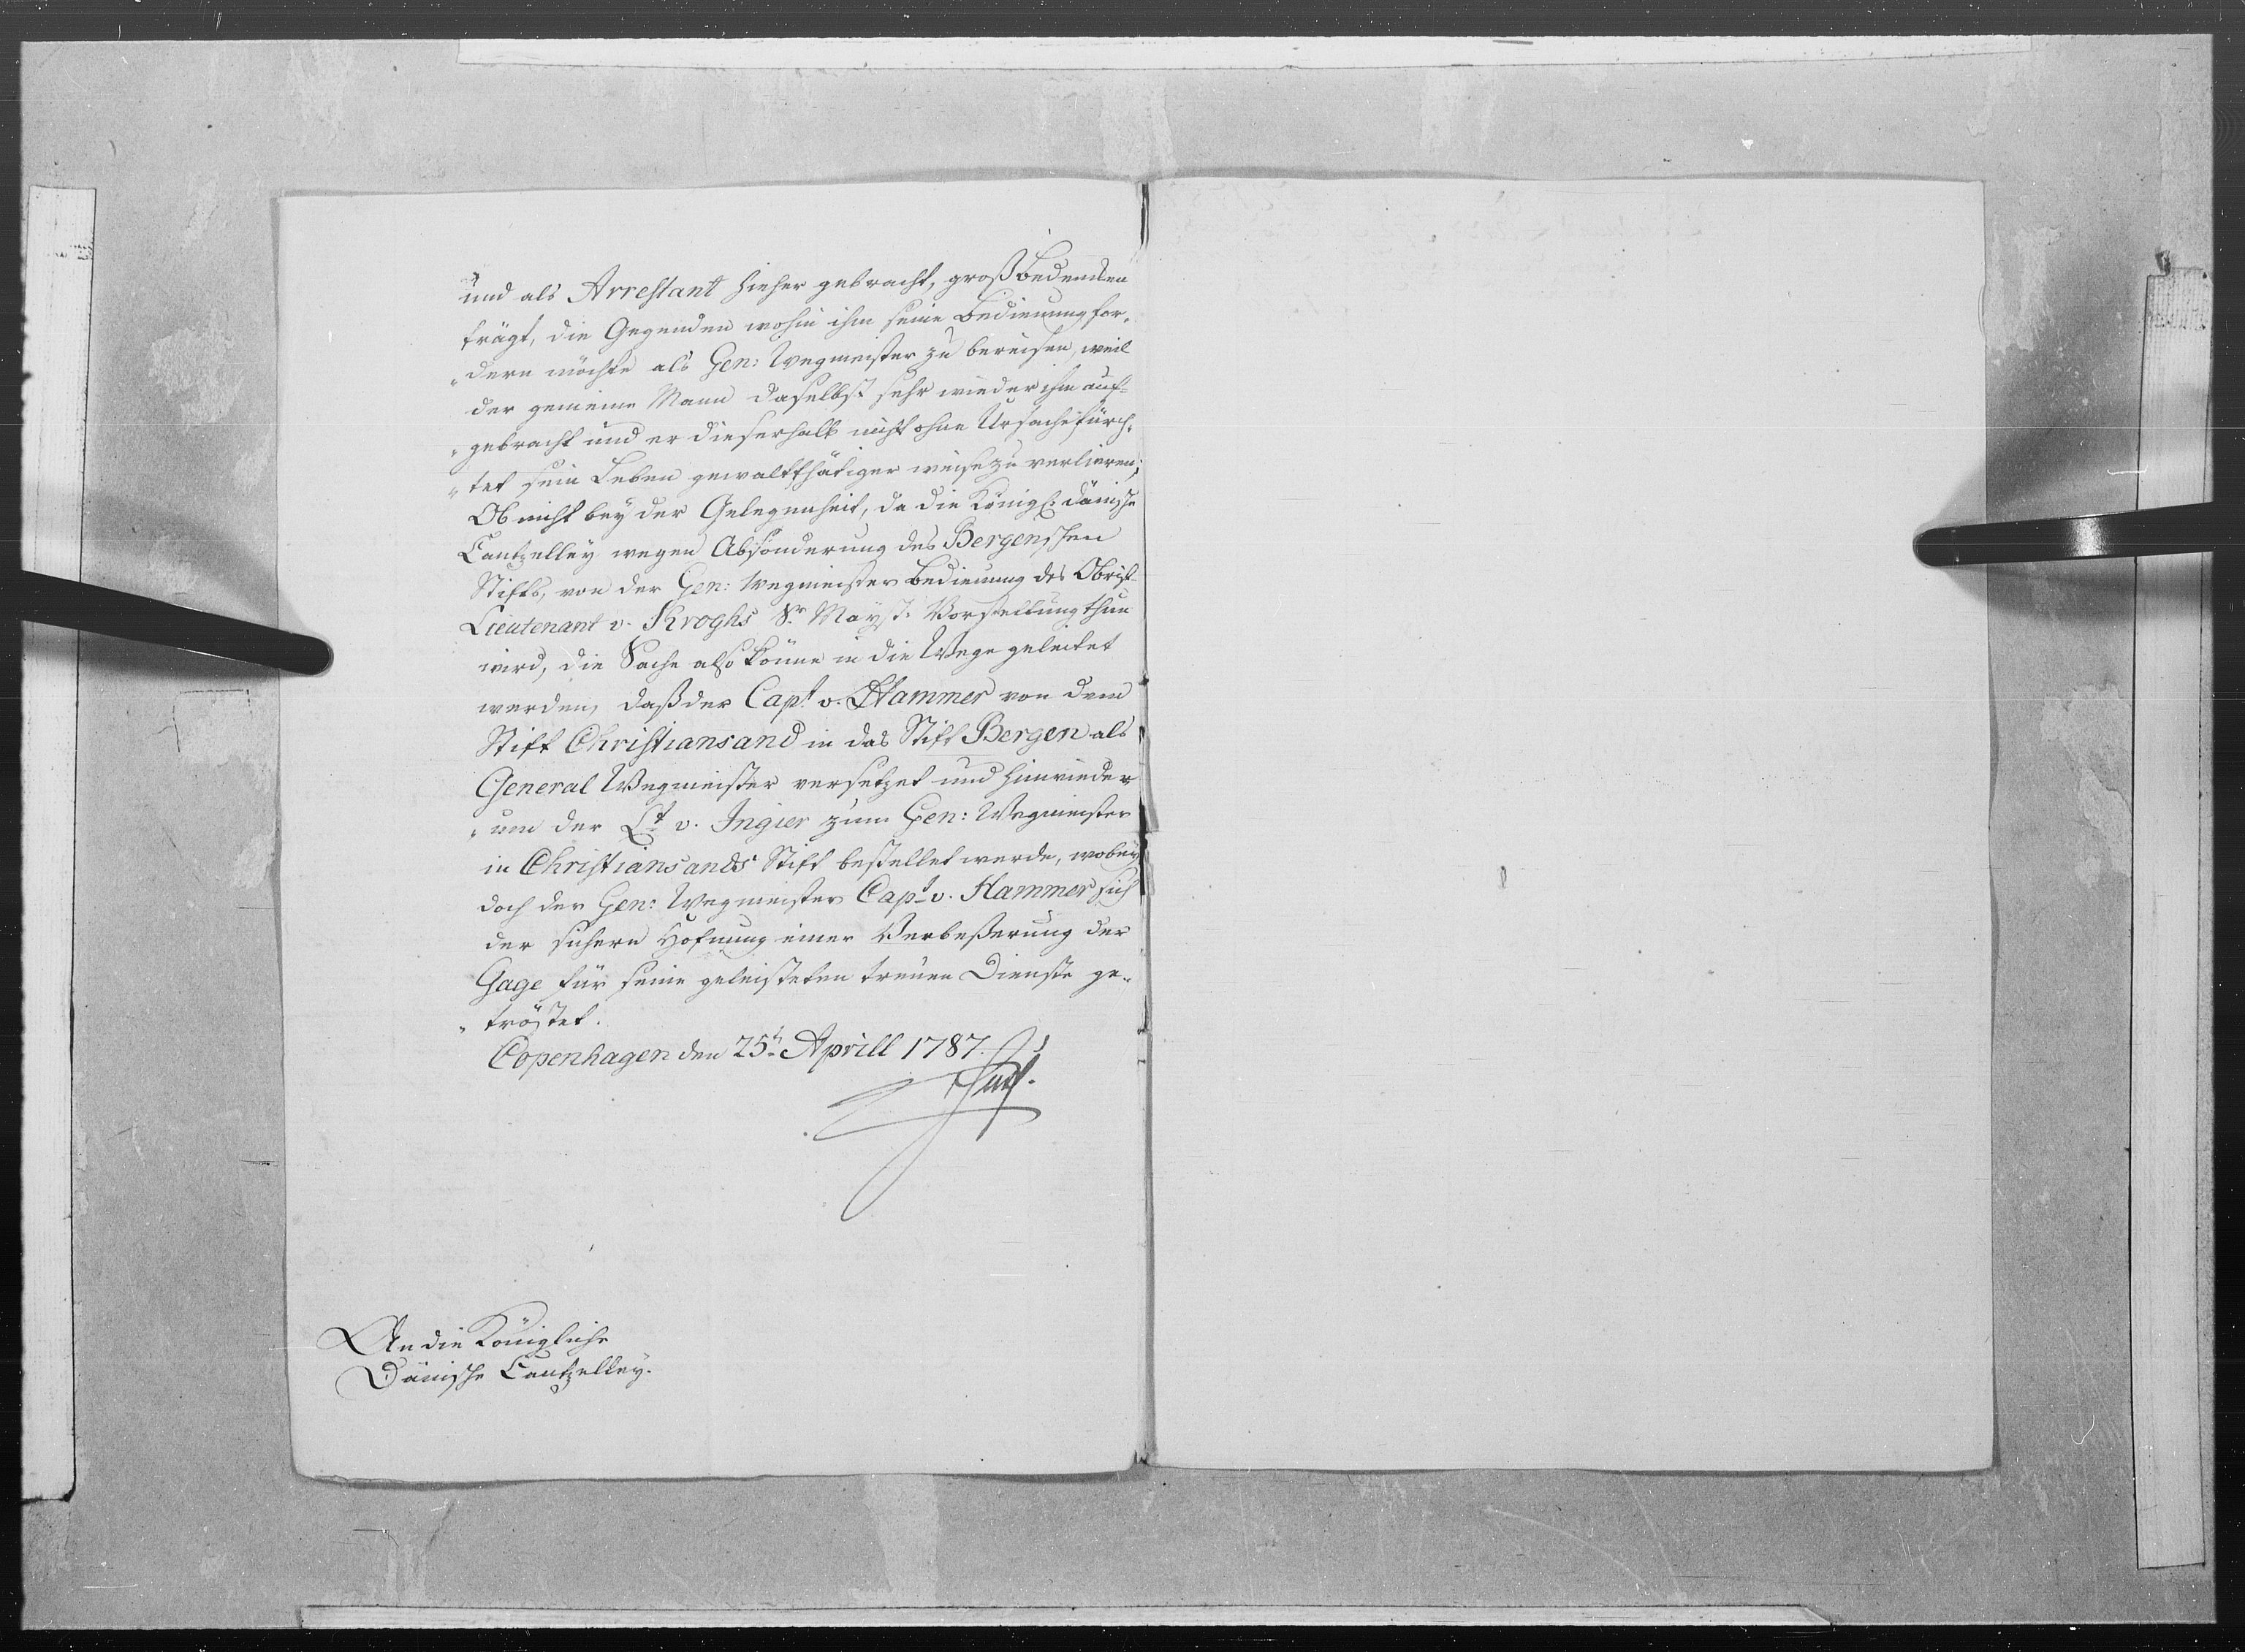 und als Arrestant hieher gebracht, groß bedencken
trägt, die Gegenden wohin ihm seine Bedienung for„
„dern möchte als Gen: Wegmeister zu bereisen, weil
der gemeine Mann daselbst sehr wieder ihm auf„
„gebracht und er dieserhalb nicht ohne Ursache fürch„
„tet sein Leben gewaltthätiger weise zu verlieren;
Ob nicht bey der Gelegenheit, da die Königl: dänische
Cantzelley wegen Absonderung des Bergenschen
Stifts, von der Gen: Wegmeister Bedienung des Obrist
Lieutenant v. Kroghs Sr. Mayst: Vorstellung thun
wird, die Sache also könne in die Wege geleitet
werden, daß der Capt v. Hammer von dem
Stift Christiansand in das Stift Bergen als
General Wegmeister versetzet und hinwieder
„um der Lt v. Ingier zum Gen: Wegmeister
in Christiansands Stift bestellet werde, wobey
doch der Gen: Wegmeister Capt v. Hammer sich
der sichern Hofnung einer Verbeßerung der
Gage für seine geleisteten treuen Dienste ge„
„tröstet.
Copenhagen den 25t Aprill 1787.
An die Königliche
Dänische Cantzelley.